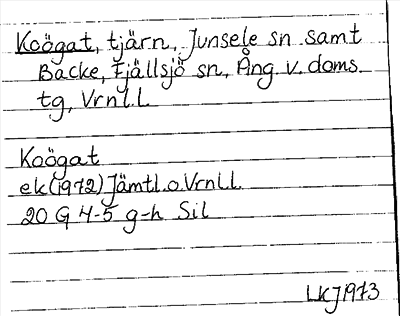 Koögat, tjärn, Junsele sn samt
Backe, Fjällsjö sn, Ång. v. doms.
tg, Vrnl.l.
Koögat
ek(1972) Jämtl.o.Vrnl.l.
20 G 4-5 g-h Sil
LKJ1973